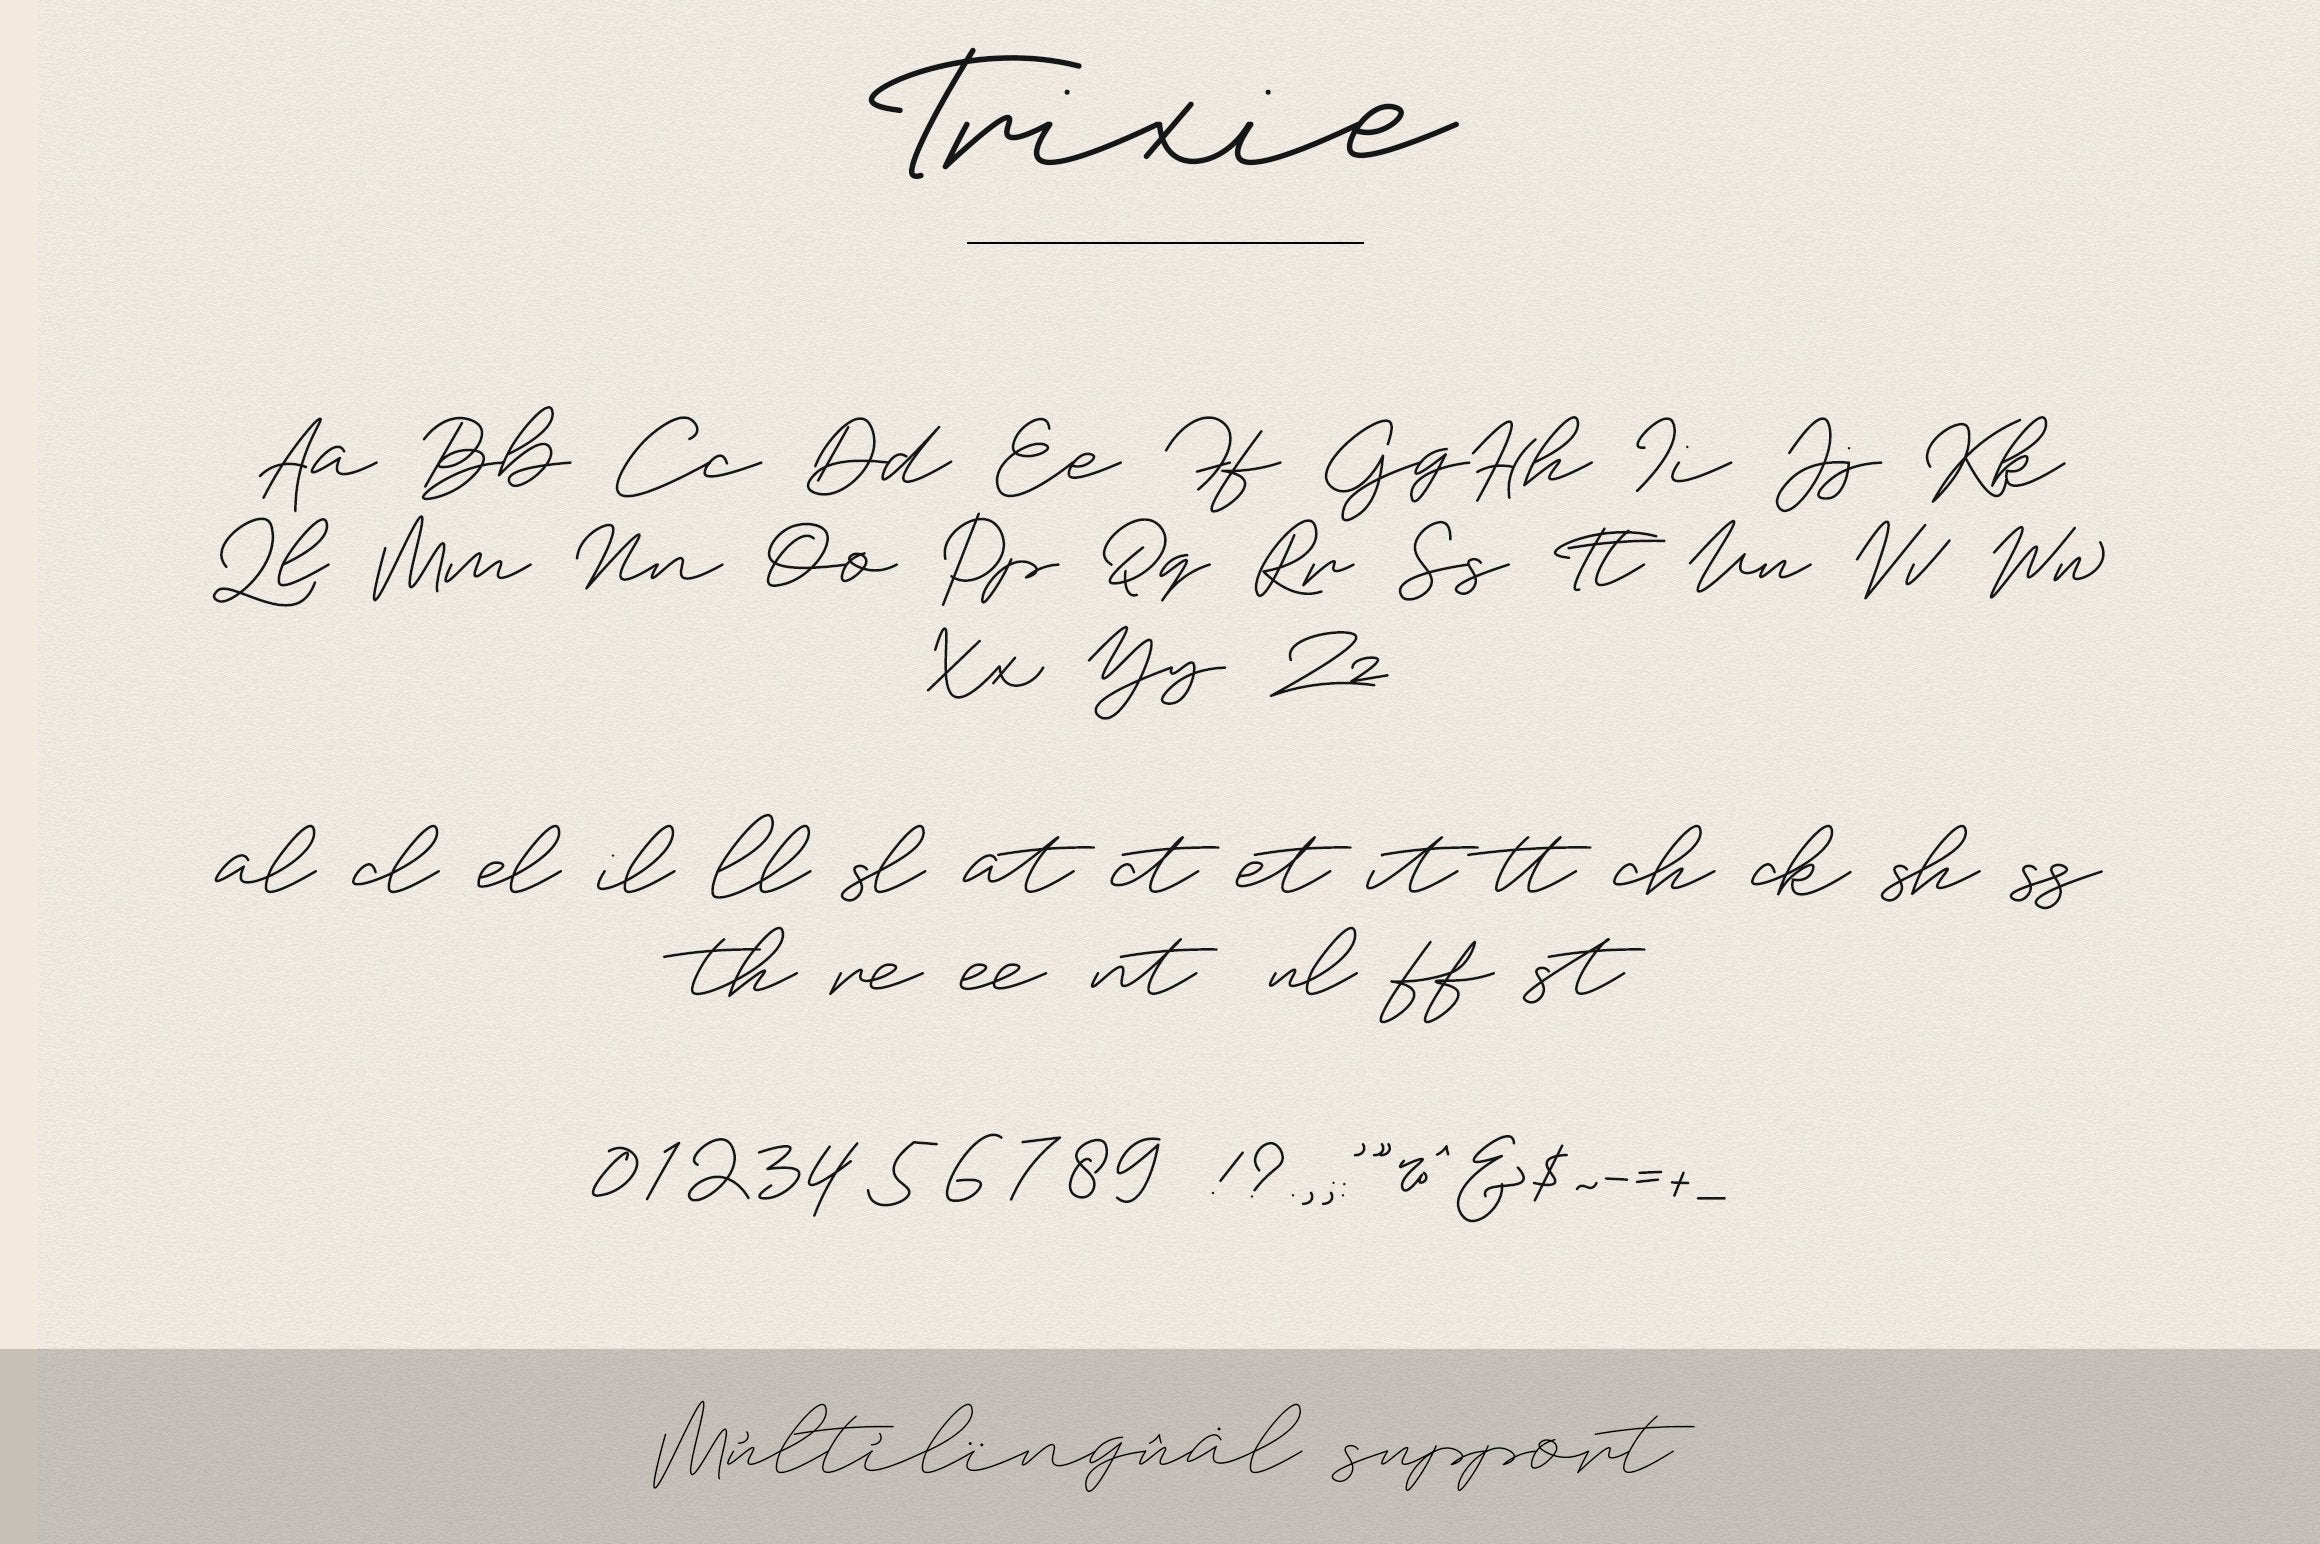 Trixie
Aa Bb Cc Dd Ee Ff Gg Hh Ii Jj Kk
Ll Mm Nn Oo Pp Qq Rr Ss Tt Uu Vv Ww
Xx Yy Zz
al cl el il ll sl at ct et it tt ch ck sh ss
th re ee nt nl ff st
0 1 2 3 4 5 6 7 8 9 ! ? . , ; : ' " % ^ & $ ~ - = + _
Múltílïngûàl support